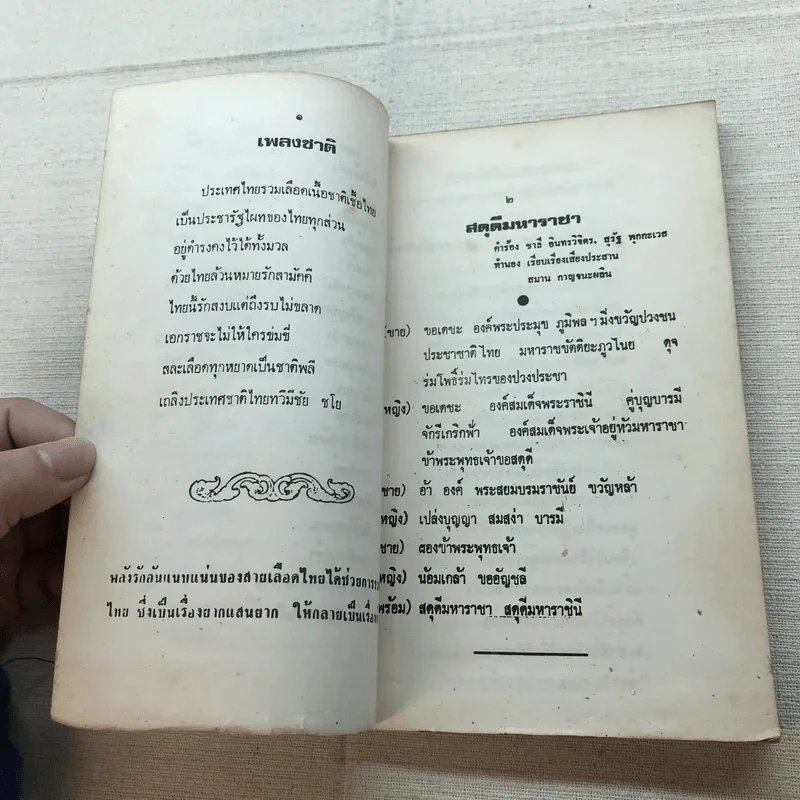 ๑
เพลงชาติ
ประเทศไทยรวมเลือดเนื้อชาติเชื้อไทย
เป็นประชารัฐไผทของไทยทุกส่วน
อยู่ดำรงคงไว้ได้ทั้งมวล
ด้วยไทยล้วนหมายรักสามัคคี
ไทยนี้รักสงบแต่ถึงรบไม่ขลาด
เอกราชจะไม่ให้ใครข่มขี่
สละเลือดทุกหยาดเป็นชาติพลี
เถลิงประเทศชาติไทยทวีมีชัย ชโย
พลังรักอันแนบแน่นของสายเลือดไทยได้ช่วยการ
ไทย ซึ่งเป็นเรื่องยากแสนยาก ให้กลายเป็นเรื่อง
๒
สดุดีมหาราชา
คำร้อง ชาลี อินทรวิจิตร, สุรัฐ พุกกะเวส
ทำนอง เรียบเรียงเสียงประสาน
สมาน กาญจนะผลิน
(ชาย) ขอเดชะ องค์พระประมุข ภูมิพล ฯ มิ่งขวัญปวงชน
ประชาชาติไทย มหาราชขัตติยะภูวไนย ดุจ
ร่มโพธิ์ร่มไทรของปวงประชา
หญิง) ขอเดชะ องค์สมเด็จพระราชินี คู่บุญบารมี
จักรีเกริกฟ้า องค์สมเด็จพระเจ้าอยู่หัวมหาราชา
ข้าพระพุทธเจ้าขอสดุดี
ชาย) อ้า องค์ พระสยมบรมราชันย์ ขวัญหล้า
หญิง) เปล่งบุญญา สมสง่า บารมี
ชาย) ผองข้าพระพุทธเจ้า
หญิง) น้อมเกล้า ขออัญชลี
พร้อม) สดุดีมหาราชา สดุดีมหาราชินี